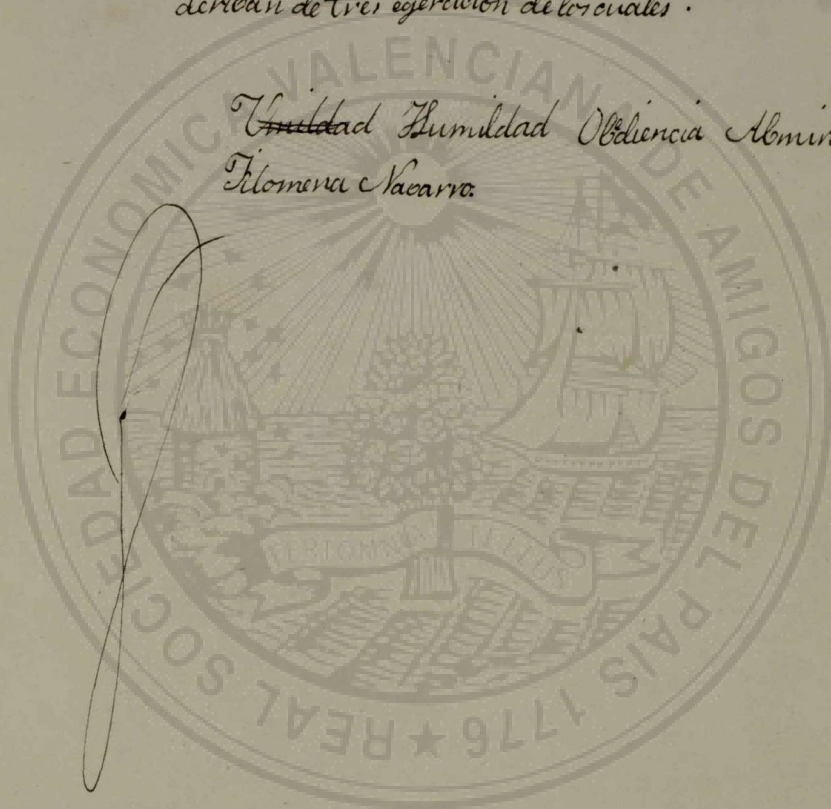 derivan de tres egercicion de los cuales.
Umildad Humildad Obdiencia Abmir
Filomena Navarro.
REAL SOCIEDAD ECONOMICA VALENCIANA DE AMIGOS DEL PAIS 1776 ★
FERT OMNIA TELLUS